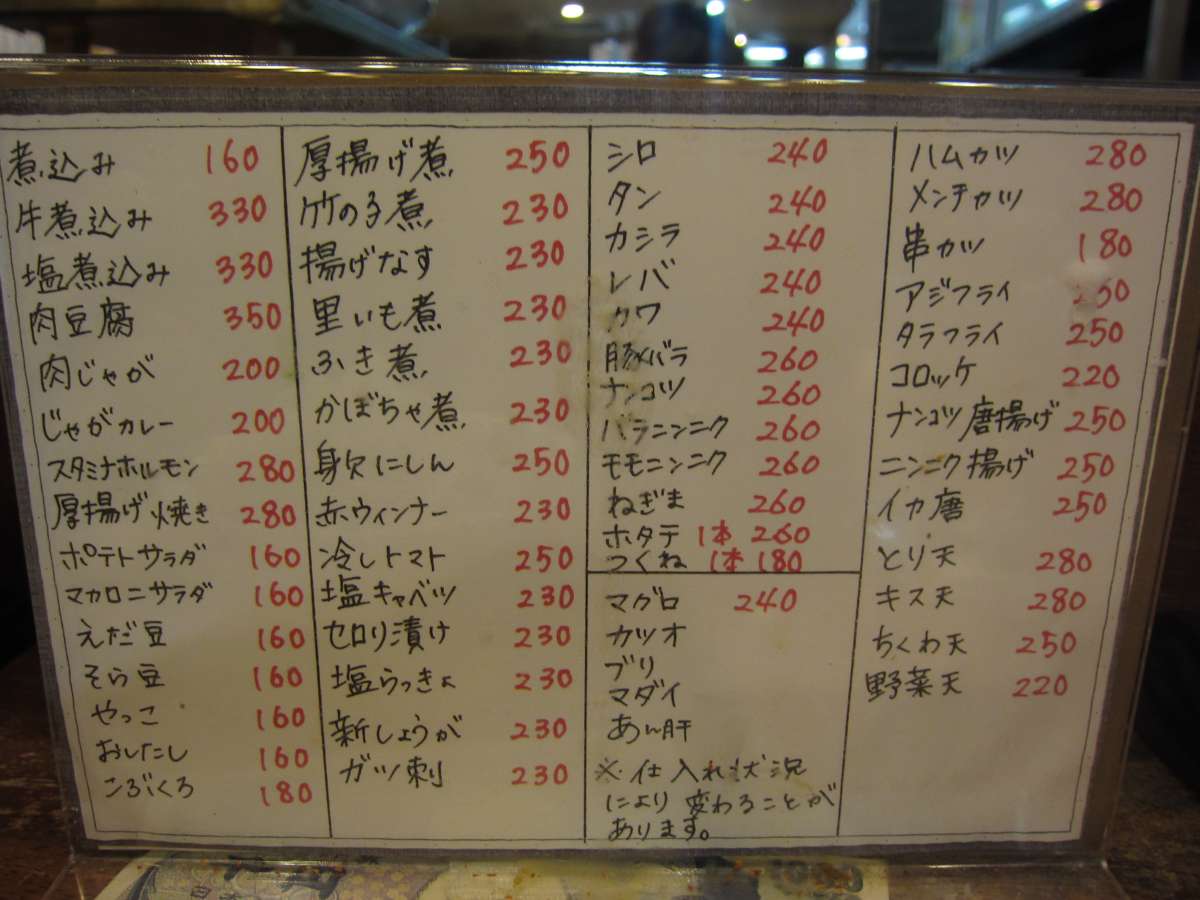 煮込み 160
牛煮込み 330
塩煮込み 330
肉豆腐 350
肉じゃが 200
じゃがカレー 200
スタミナホルモン 280
厚揚げ焼き 280
ポテトサラダ 160
マカロニサラダ 160
えだ豆 160
そら豆 160
やっこ 160
おしたし 160
こぶくろ 180
厚揚げ煮 250
竹の子煮 230
揚げなす 230
里いも煮 230
ふき煮 230
かぼちゃ煮 230
身欠にしん 250
赤ウィンナー 230
冷しトマト 250
塩キャベツ 230
セロリ漬け 230
塩らっきょ 230
新しょうが 230
ガツ刺 230
シロ 240
タン 240
カシラ 240
レバ 240
カワ 240
豚バラ 260
ナンコツ 260
バラニンニク 260
モモニンニク 260
ねぎま 260
ホタテ 1本 260
つくね 1本 180
マグロ 240
カツオ
ブリ
マダイ
あん肝
※仕入れ状況
により変わることが
あります。
ハムカツ 280
メンチカツ 280
串カツ 180
アジフライ
タラフライ 250
コロッケ 220
ナンコツ唐揚げ 250
ニンニク揚げ 250
イカ唐 250
とり天 280
キス天 280
ちくわ天 250
野菜天 220